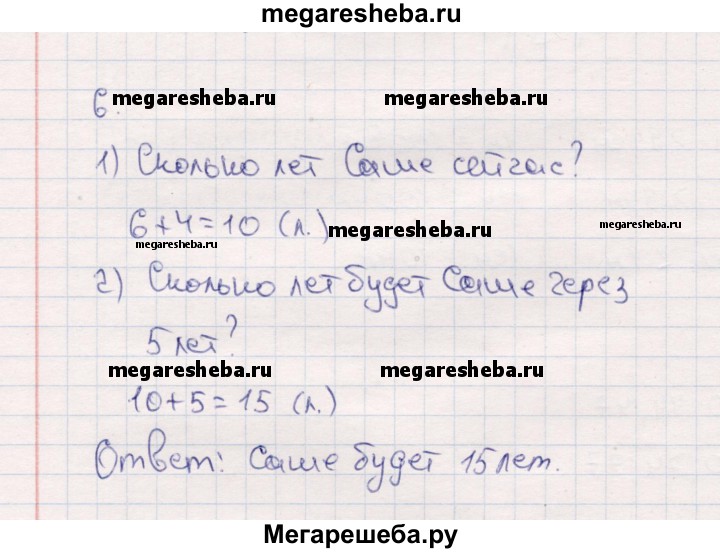 megaresheba.ru
6. megaresheba.ru megaresheba.ru
1) Сколько лет Саше сейчас?
6+4=10 (л.) megaresheba.ru megaresheba.ru
megaresheba.ru
2) Сколько лет будет Саше через
5 лет?
megaresheba.ru megaresheba.ru
10+5=15 (л.)
Ответ: Саше будет 15 лет.
Мегарешеба.ру